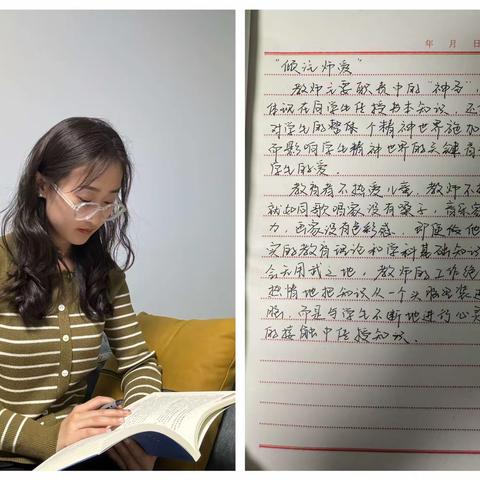 年 月 日
"倾注师爱"
教师主要职责中的"神圣",
体现在向学生传授书本知识,
对学生的整体个精神世界施加
而影响学生精神世界的关键首
学生的爱。
教育者不热爱儿童,教师不
就如同歌唱家没有嗓子,音乐家
力,画家没有色彩感.即便他
实的教育理论和学科基础知识
会无用武之地,教师的工作绝
热情地把知识从一个头脑里装进
脑,而是与学生不断地进行心灵
的接触中传授知识.